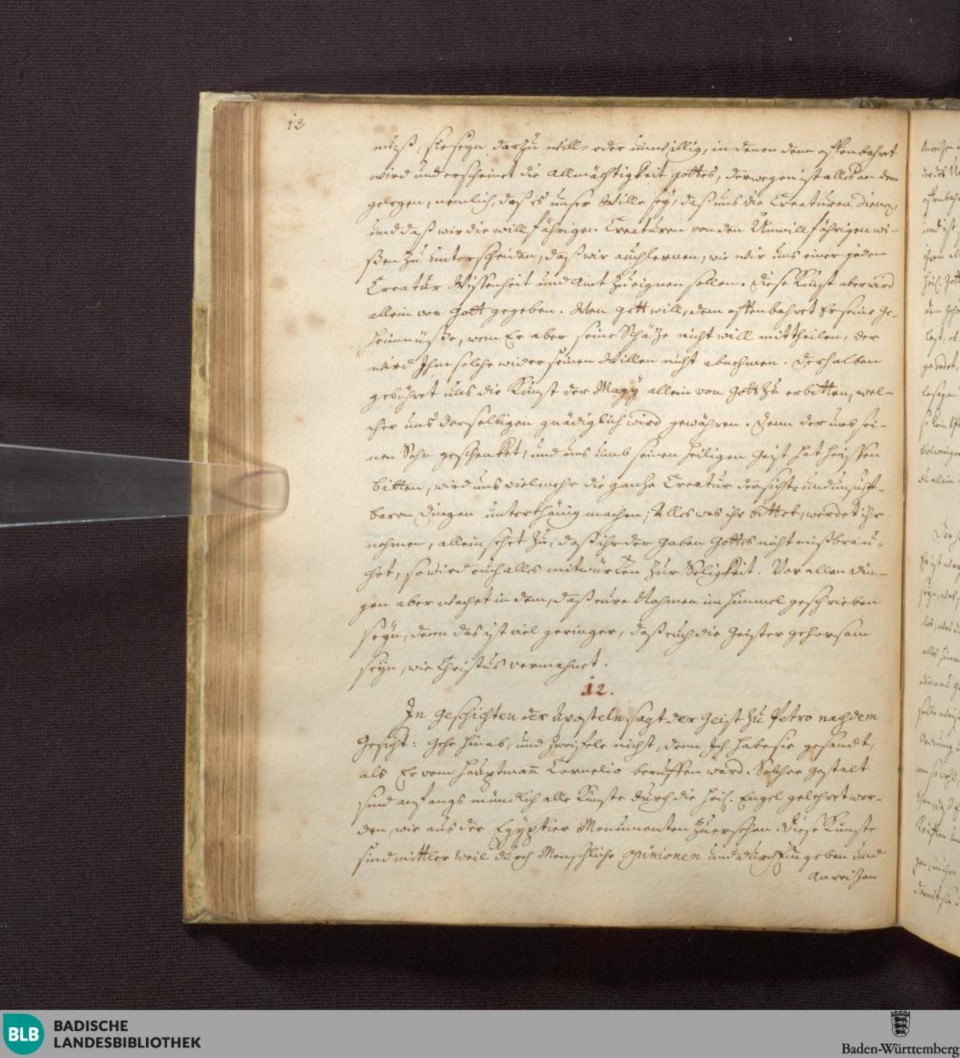 12
muß, sie seyn darzu will- oder unwillig, in denen dann offenbahret
wird und erscheinet die Allmächtigkeit gottes, derowegen ist alles an dem
gelegen, nemlich, daß es unser Wille sey, daß uns die Creaturen dienen,
und daß wir die willfährigen Creaturen von den Unwillfährigen wi-
ßen zu unterscheiden, daß wir auch lernen, wie wir uns einer jeden
Creatur Wissenheit und Amt zueignen sollen. Diese Kunst aber wird
allein von Gott gegeben. Wem gott will, dem offenbahret Er seine Ge-
heimnüße, wem Er aber seine Schätze nicht will mittheilen, der
wird Ihm solche wider seinen Willen nicht abnehmen. Derhalben
gebühret uns die Kunst der Magy allein von Gott zu erbitten, wel-
cher uns derselbigen gnädiglich wird gewähren. Denn der uns sei-
nen Sohn geschenket, und uns umb seinen heiligen Geist hat heissen
bitten, wird uns vielmehr die ganze Creatur der sicht- und unsicht-
baren Dingen unterthänig machen, Alles was ihr bittet, werdet ihr
nehmen, allein sehet zu, daß ihr der Gaben Gottes nicht mißbrau-
chet, so wird euch alles mitwürken zur Seligkeit. Vor allen Din-
gen aber wachet in dem, daß eure Nahmen im Himmel geschrieben
seyn, denn das ist viel geringer, daß euch die Geister gehorsam
seyn, wie Christus vermahnet.
12.
In Geschichten der Aposteln, sagt der Geist zu Petro nach dem
Gesicht: Gehe hinab, und zweifele nicht, denn Ich habe sie gesandt,
als Er vom Hauptmann Cornelio beruffen ward. Solcher gestalt
sind anfangs mündlich alle Künste durch die heil. Engel gelehret wor-
den, wie aus der Egyptier Monumenten zuersehen. Diese Künste
sind mittler weil durch Menschliche opinionen und durch Eingeben und
Anreitzen
BLB BADISCHE
LANDESBIBLIOTHEK
Baden-Württemberg